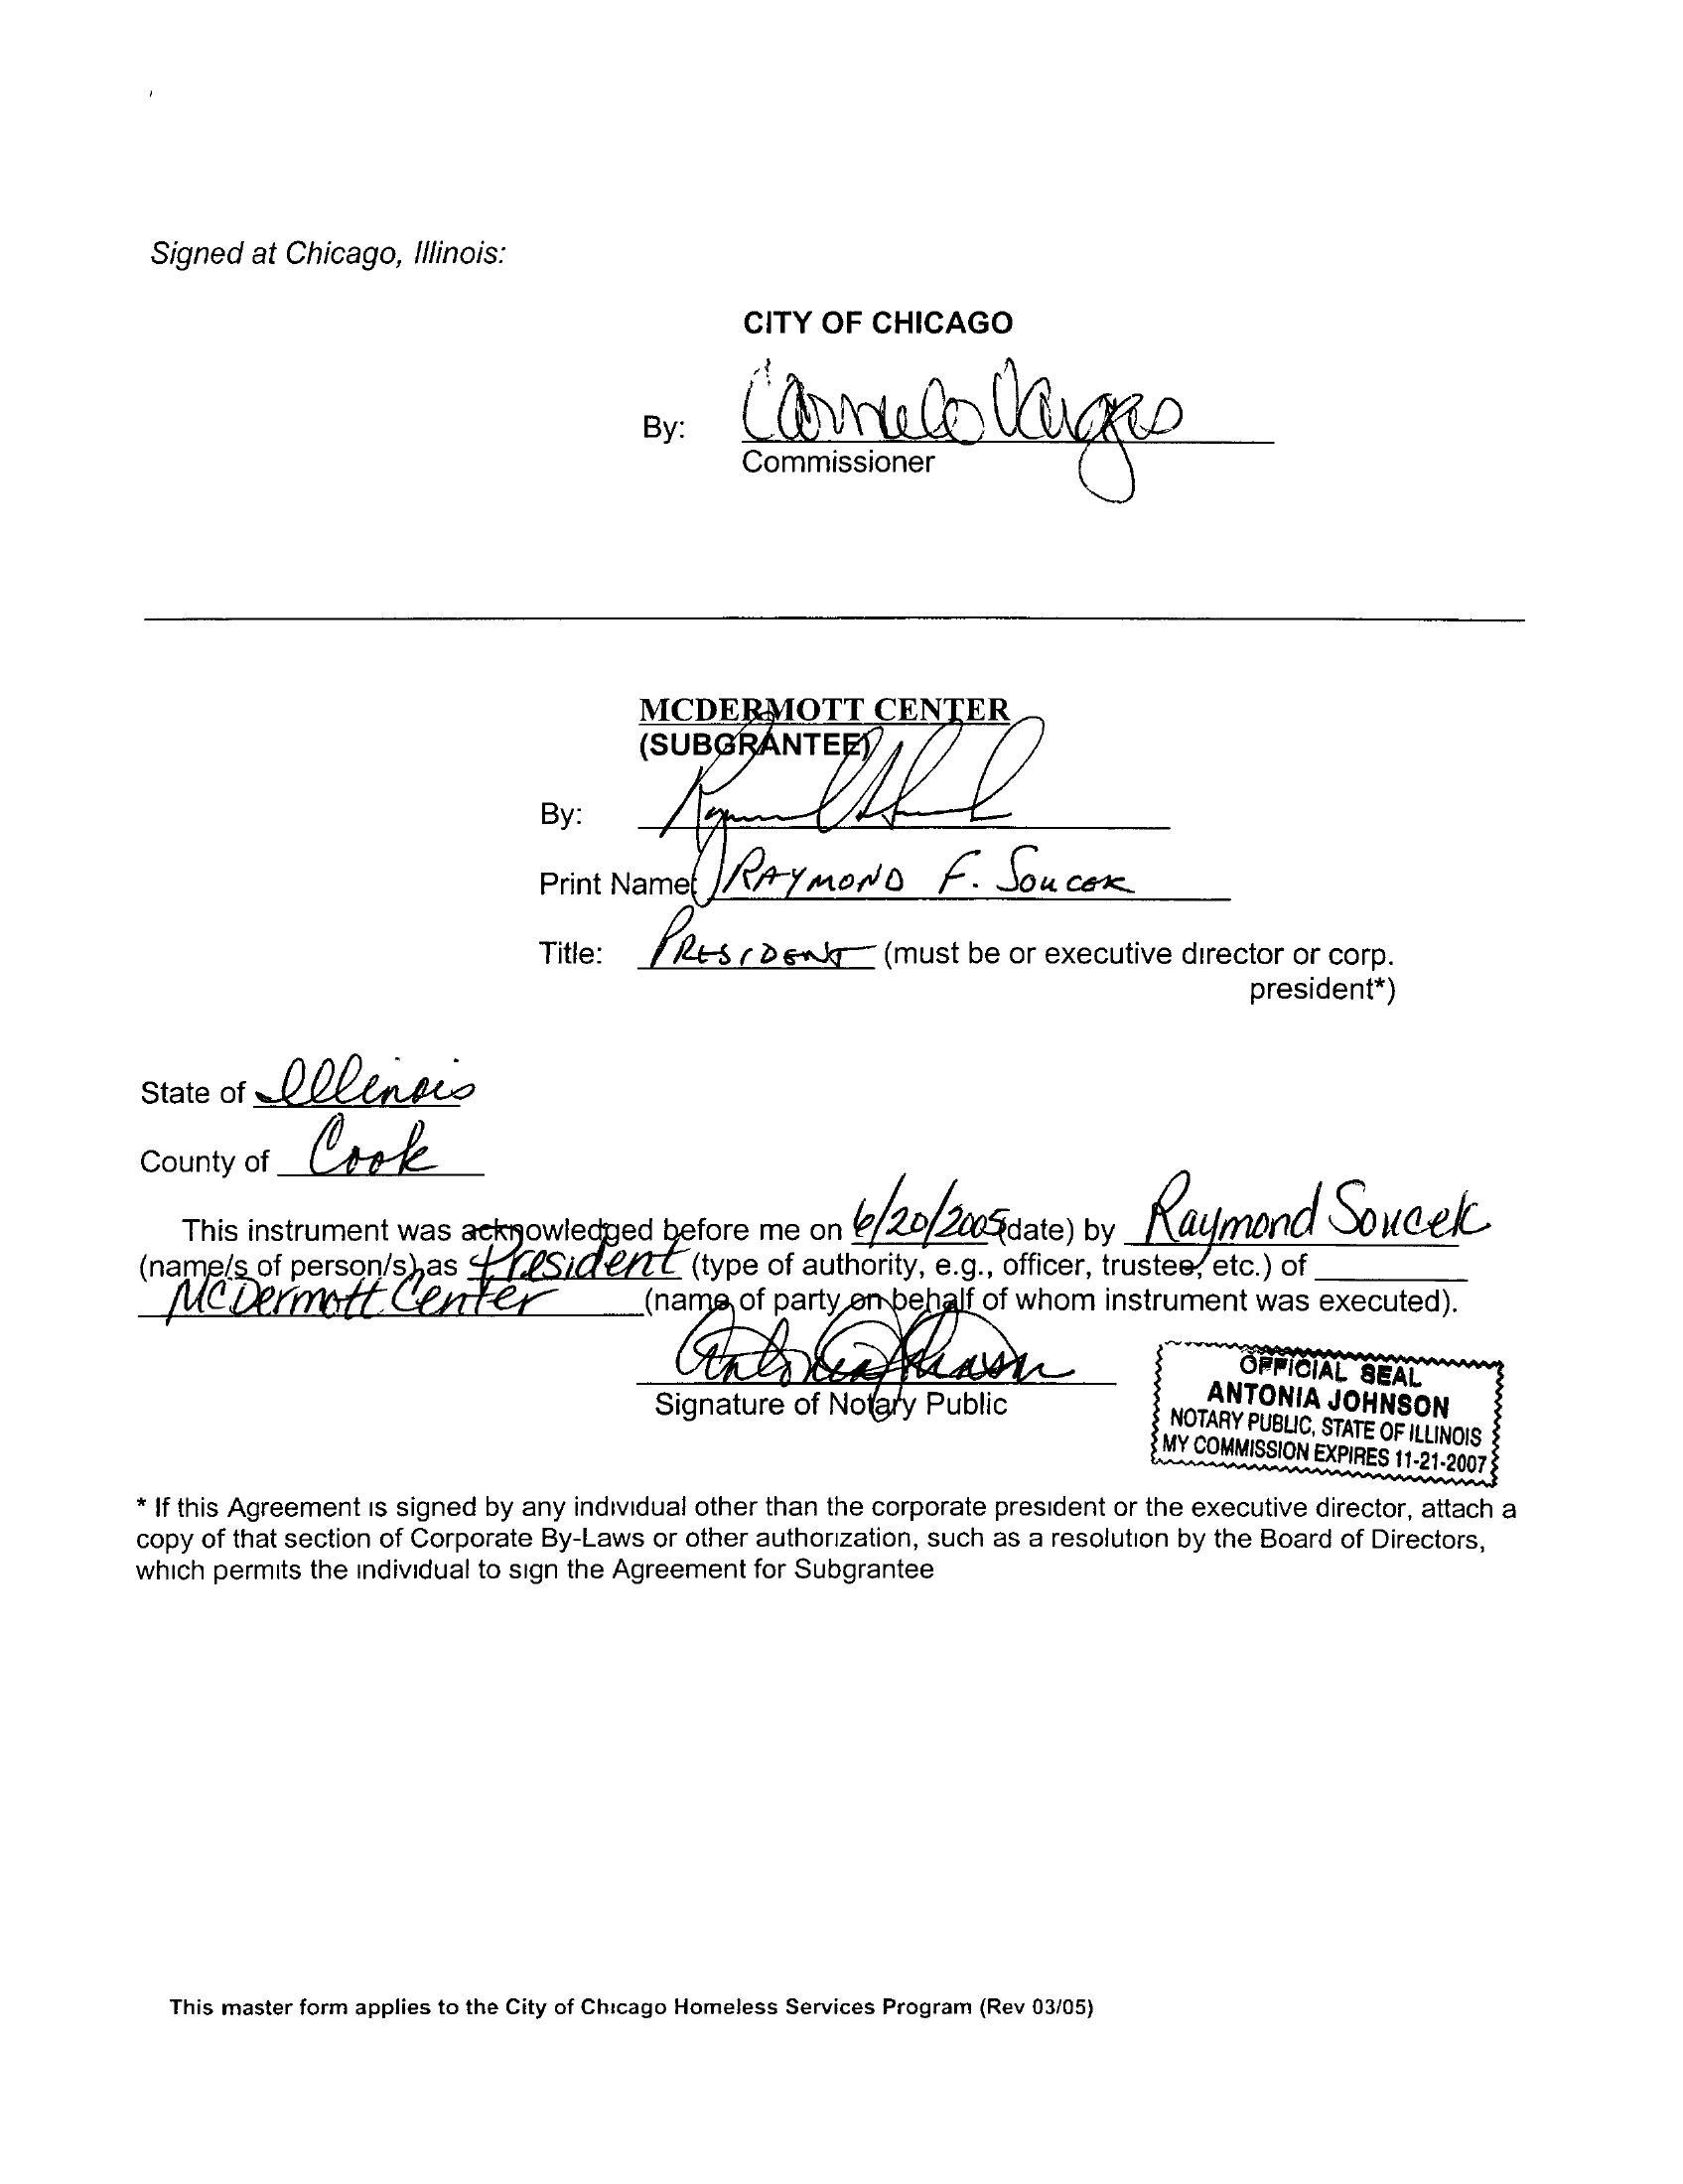 Signed at Chicago, Illinois:
CITY OF CHICAGO
By: Carmelo Vargas
Commissioner
MCDERMOTT CENTER
(SUBGRANTEE)
By:
Print Name: RAYMOND F. SOUCEK
Title: PRESIDENT (must be or executive director or corp.
president*)
State of Illinois
County of Cook
This instrument was acknowledged before me on 6/20/2005 (date) by Raymond Soucek
(name/s of person/s) as President (type of authority, e.g., officer, trustee, etc.) of
McDermott Center (name of party on behalf of whom instrument was executed).
Antonia Johnson
Signature of Notary Public
OFFICIAL SEAL
ANTONIA JOHNSON
NOTARY PUBLIC, STATE OF ILLINOIS
MY COMMISSION EXPIRES 11-21-2007
* If this Agreement is signed by any individual other than the corporate president or the executive director, attach a
copy of that section of Corporate By-Laws or other authorization, such as a resolution by the Board of Directors,
which permits the individual to sign the Agreement for Subgrantee
This master form applies to the City of Chicago Homeless Services Program (Rev 03/05)